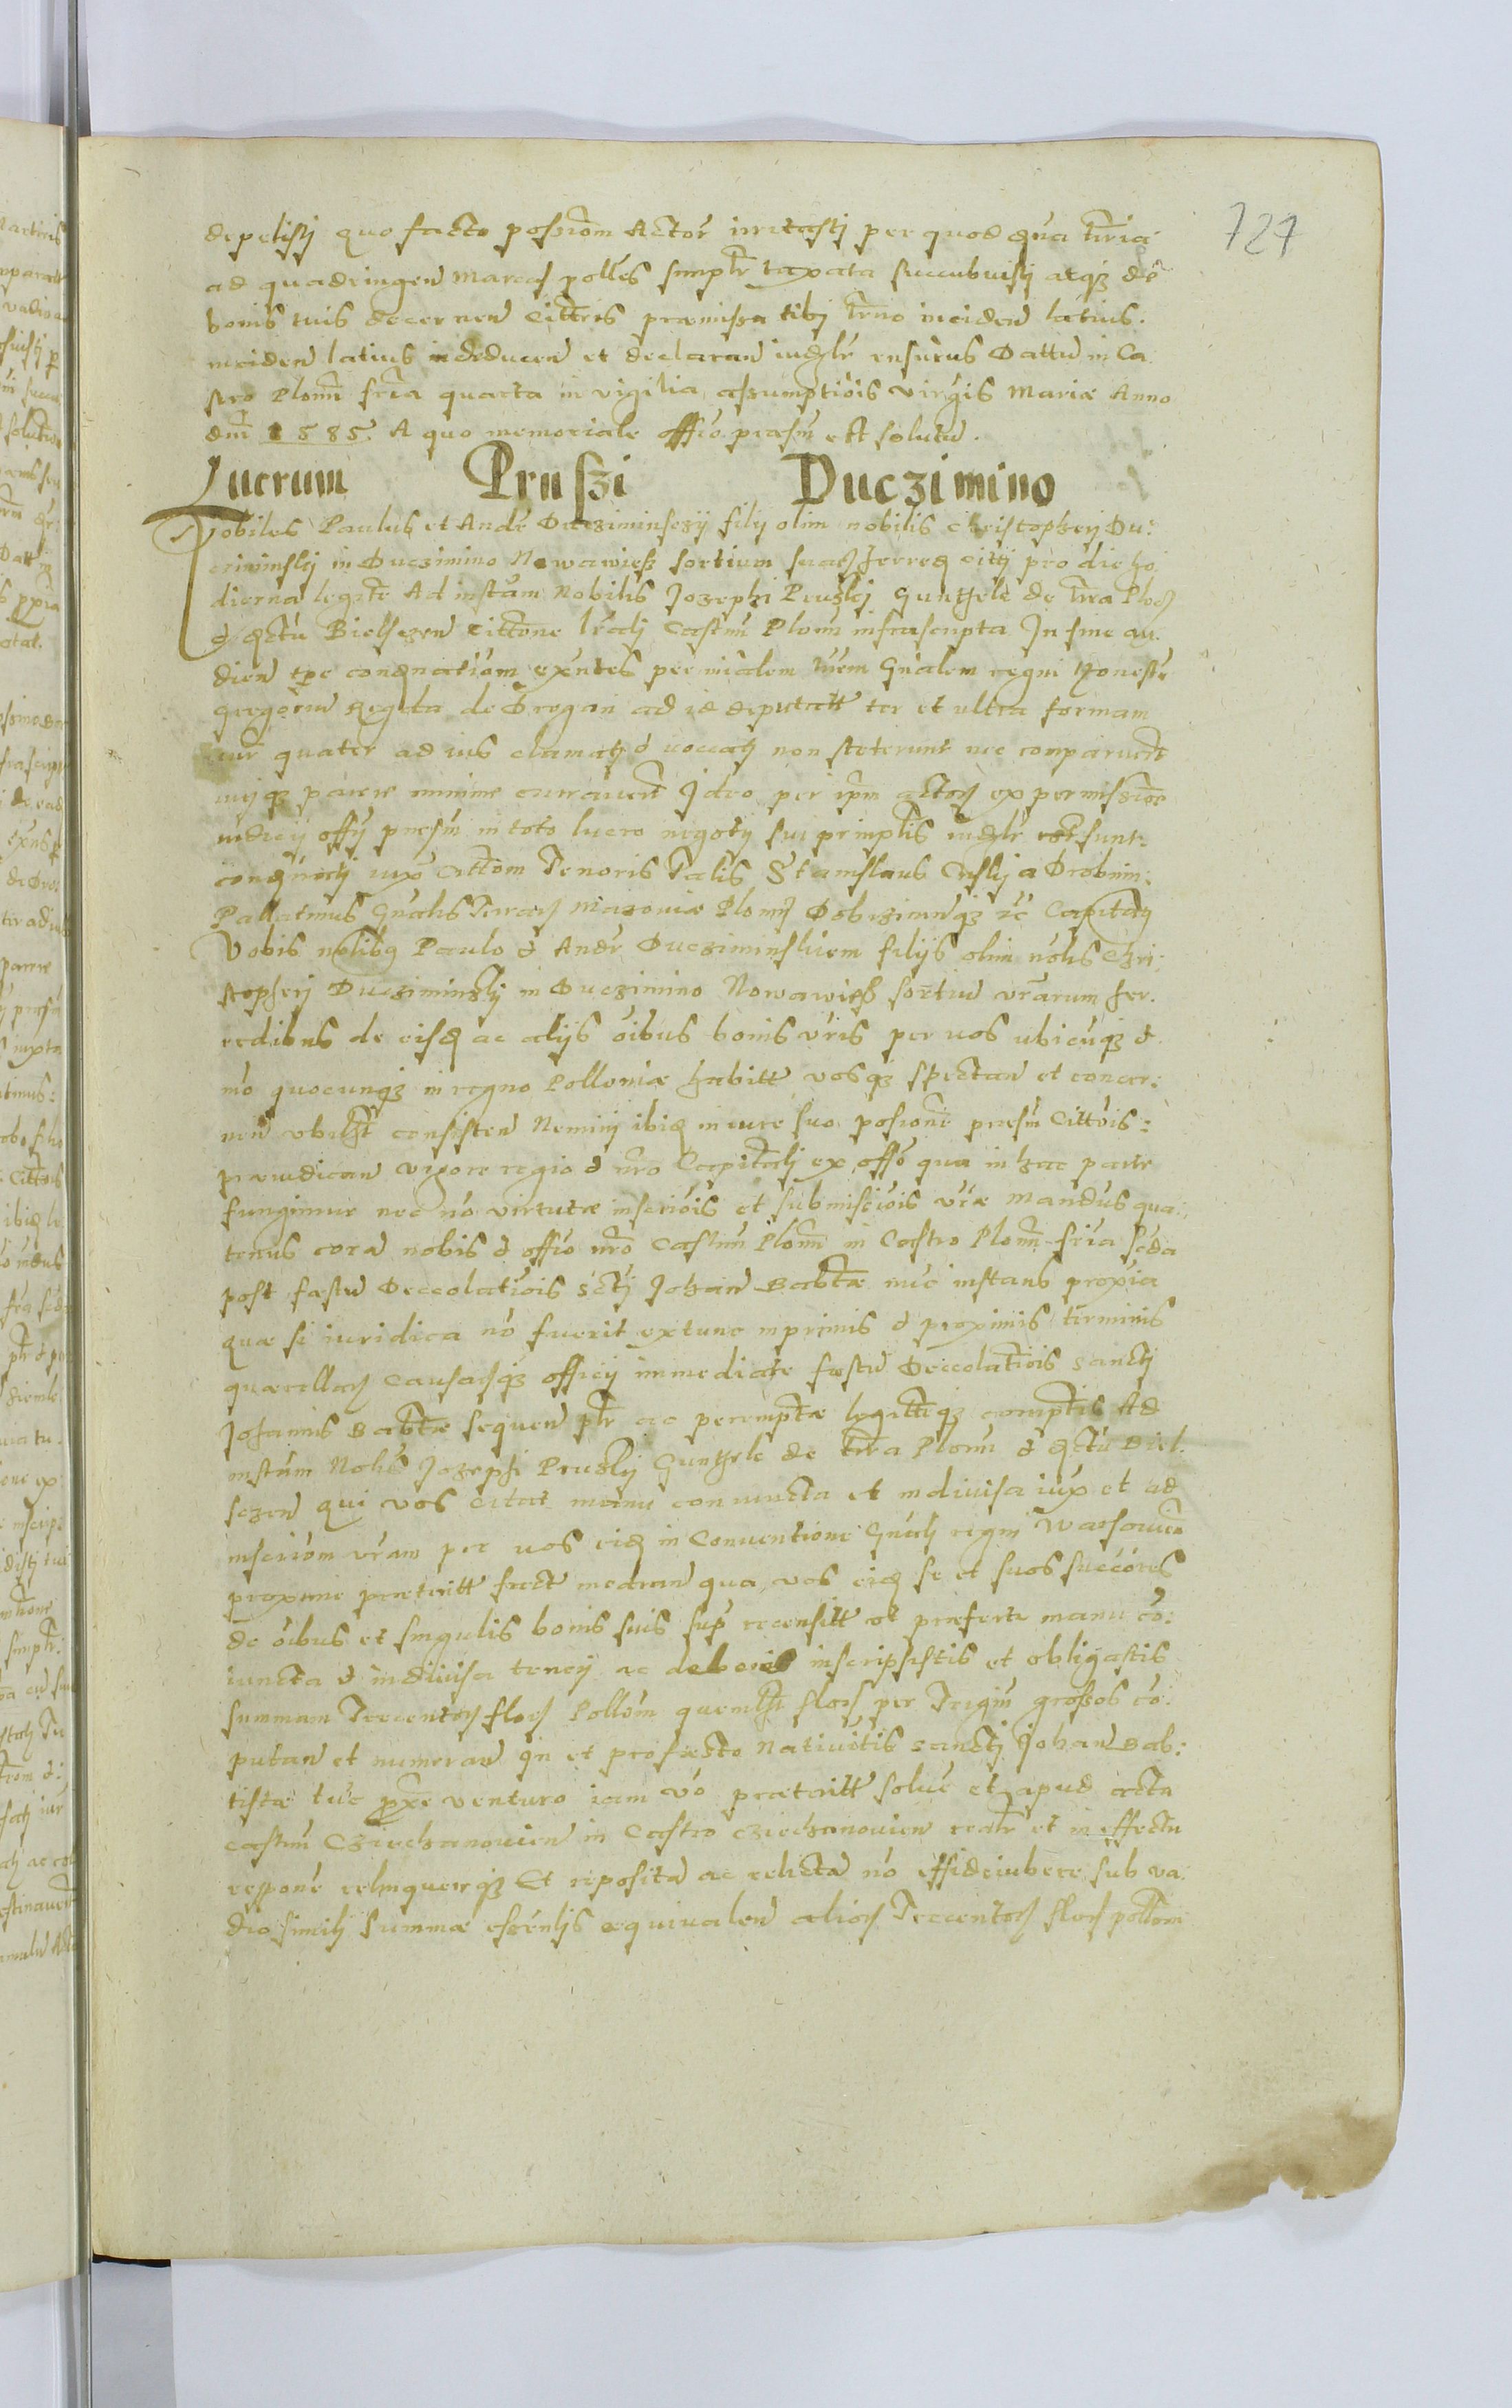 727
depelisti quo facto possiom Actor irritasti per quod qua
ad quadringen Marcas polles simplr taxata succubuisti atqz de
bonis tuis decernen Cittris praemissa tibj trno inciden latius.
inciden latius in deducen et declaran iudlr ensurus Dattu in Ca
stro Plonn fria quarta in vigilia assumptiois virgis Mariae Anno
dni 1585. A quo memoriale offio praesn est solutu.
Lucrum Pruszi Duczimino
Nobiles Paulus et Andr Ducziminsczy filij olim nobilis Christopheri Du:
criminskj in Duczimino Nowawiess sortium suar herreds citti pro die ho
dierna legitte Ad instam Nobilis Jozephi Pruskj Gunthele de trra Ploc
et dctu Bielsczen Cittone lrali Castrn Plonn infrascripta In fine au:
dien tpe condnatiom exntes per mialem iurem Gnalem regni Honestu
Gregoriu de Drogan ad id deputatt ter et ultra formam
iur quater ad ius clamati et uoccati non steterunt nec comparuert
iurjqz parere minime curauert Ideo per ipm actor ex permissione
iudicij offij pnesn in toto lucro negotij sui prinplis iudlr sunt
condnati iux Cittom Tenoris Talis Stanislaus a Drobnin:
Pallatinus Gnalis Terrar Mazoviae Plonn Dobrzinenqz zc Capitaz
Vobis nolibz Paulo et Andr Duczimisklem filijs olim nolis Chri:
stopheri Dicziminzkj in Duczimino Nowawiess sortiu vrarum her:
redibus de eisd ac alijs oibus bonis vris per uos ubicuqz et
mo quocunqz in regno Polloniae habitt vosqz spectan et concer:
nen vbilzt consisten Nemini ibid in iure suo possione praesn Cittois:
praeiudican vigore regio et nro Capitali ex offo qua in hac parte
fungimur nec no virtutae inscriois et submissiois vrae Mandus qua:
tenus cora nobis et offio nro Castrn Plonn in Castro Plonn fria scda
post festu Deccolatiois scti Johan Babtae nuc instans proxia
quae si iuridica no fuerit extunc inprimis et proximis terminis
quaerellar Causarqz officij immediate festu Deccolatiois sancti
Johannis Babtae sequen ptr ac peremptae legittqz comptis Ad
instam Nolis Jozephi Pruskj Gunthele de trra Plonn et dctu Biel:
sczen qui vos citat manu coniuncta et indiuisa iux et ad
inscriom vram per uos eid in Conuentione Gnali regni Warsouien
proxime praeteritt fact median qua vos eid se et suos succores
de oibus et singulis bonis suis sup recensitt ut praeferte manu co:
iuncta et indiuisa tenerj ac deberi inscripsistis et obligastis
summam Trecentor flor Pollon quemlzt flor per Trign grossos co:
putan et numeran in et pro festo Natiuitis sancti Johan Bab:
tistae tuc pxe venturo iam vo praeteritt solue et apud acta
castrn Cziechanouien in Castro Cziechanouien realr et in effectu
repponere relinquerqz Et reposita ac relicta no effideiubere sub va:
dio simili summae essenlis aequiualen alior Trecentor flor pollon